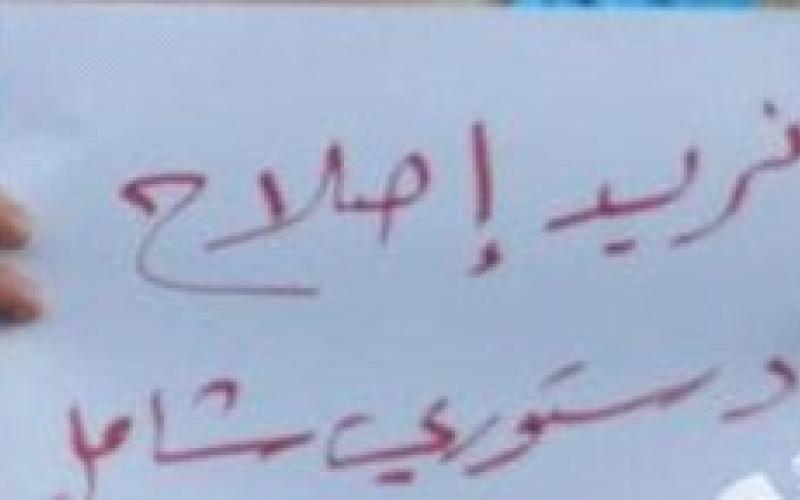 نريد إصلاح
دستوري شامل